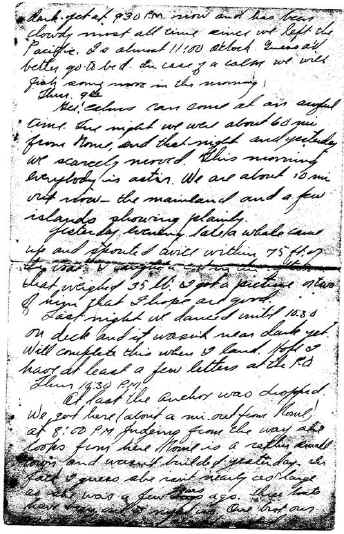 dark yet at 9:30 P.M. now and has been
cloudy most all time since we left the
Pacific. Is almost 11:00 o'clock. Guess I'll
better go to bed. In case of a calm we will
fish some more in the morning.
Thur. 9th
Gee, calms can come at an awful
time. Tue night we were about 60 mi
from Nome, and that night and yesterday
we scarcely moved. This morning
everybody is astir. We are about 10 mi
out now - the mainland and a few
islands showing plainly.
Yesterday evening late a whale came
up and spouted twice within 75 ft. of
that weighed 35 lb. I got a picture or two
of him that I hope are good.
Last night we danced until 10:30
on deck and it wasn't near dark yet.
Will complete this when I land. Hope I
have at least a few letters at the P.O.
Thur 10:30 P.M.
At last the anchor was dropped.
We got here (about a mi. out from Nome)
at 8:00 P.M. Judging from the way she
looks from here Nome is a rather small
town and wasn't builded yesterday. In
fact I guess she isn't nearly as large
as she was a few years ago. Three boats
have